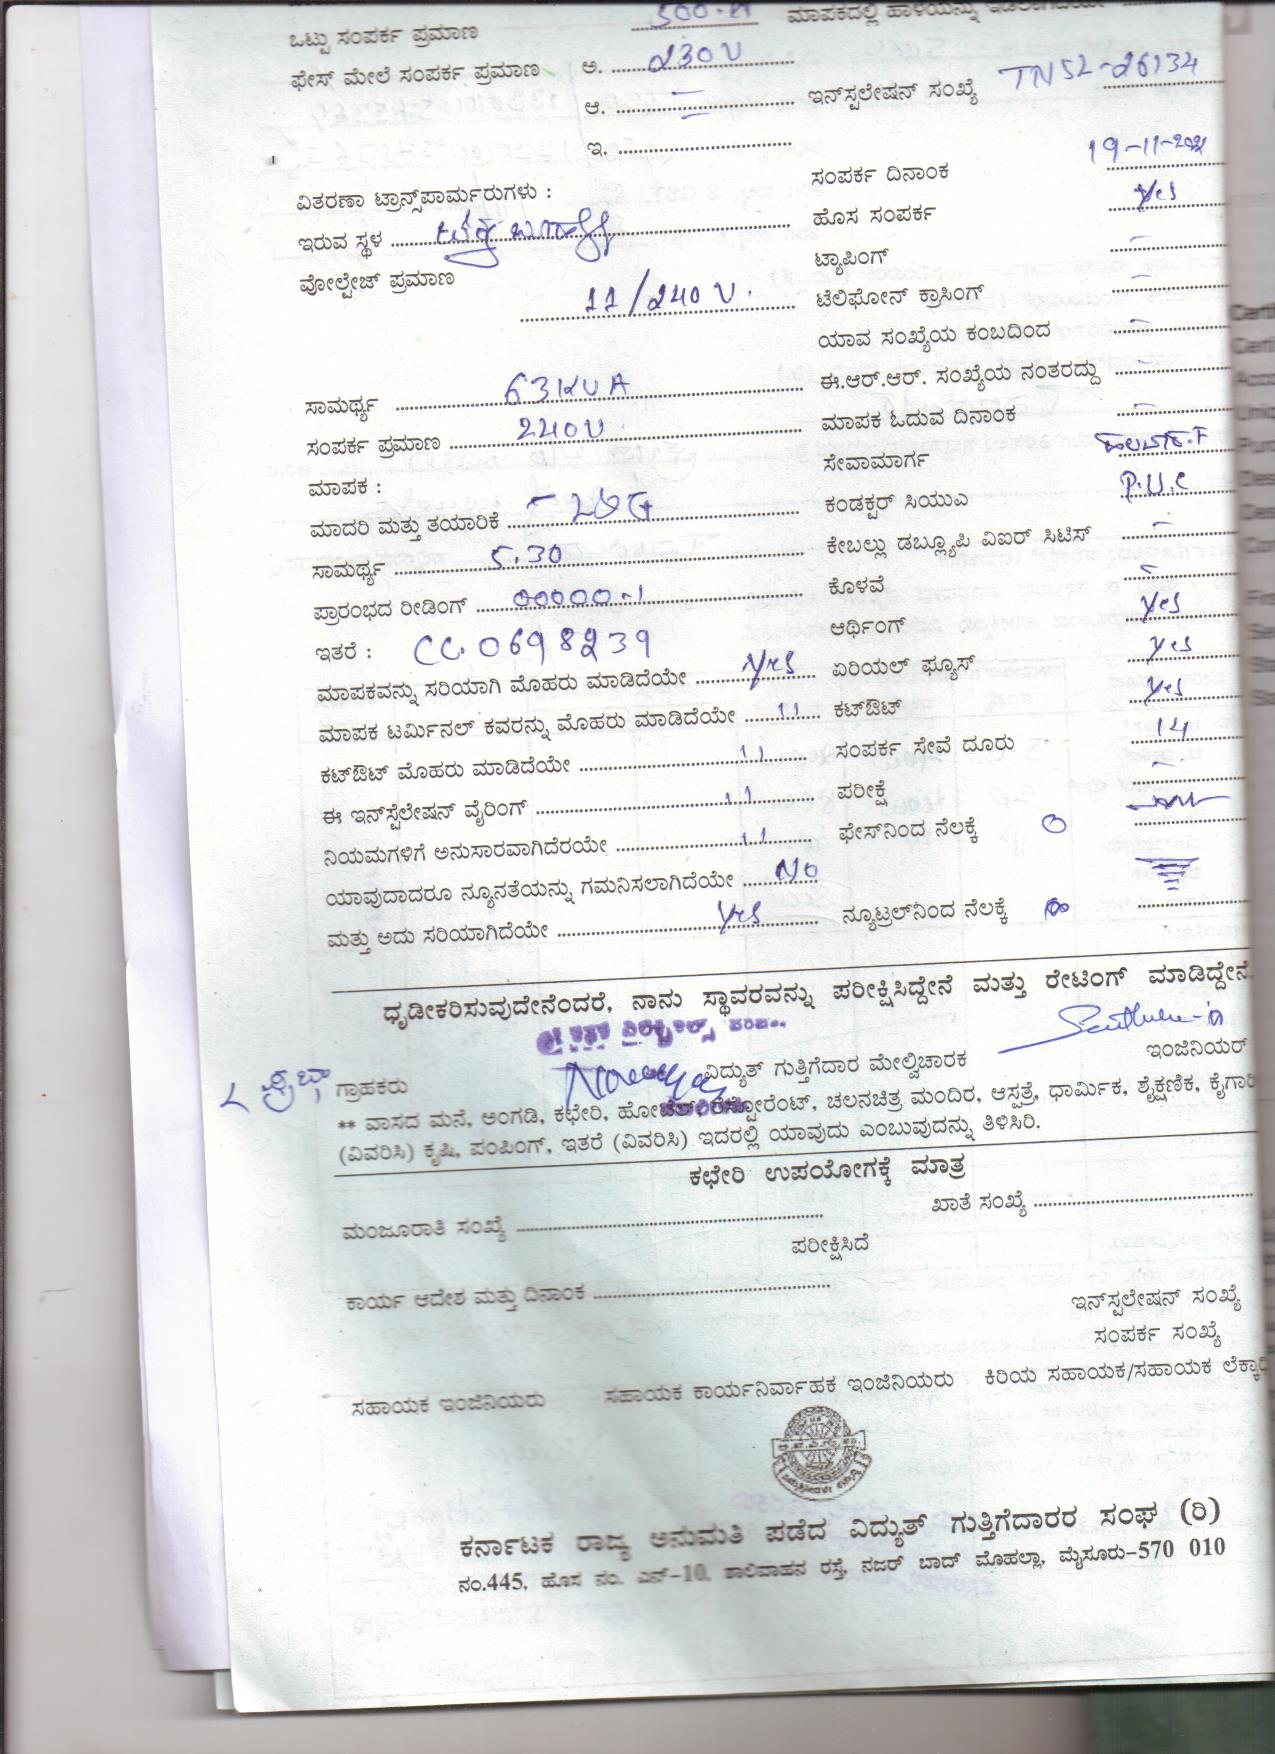 ಒಟ್ಟು ಸಂಪರ್ಕ ಪ್ರಮಾಣ 500 ಮಾಪಕದಲ್ಲಿ ಹಾಳೆಯನ್ನು
ಫೇಸ್ ಮೇಲೆ ಸಂಪರ್ಕ ಪ್ರಮಾಣ ಅ. 230 V
ಆ. – ಇನ್‌ಸ್ಪಲೇಷನ್ ಸಂಖ್ಯೆ TNS2-26134
ಇ.
ಸಂಪರ್ಕ ದಿನಾಂಕ 19-11-2021
ವಿತರಣಾ ಟ್ರಾನ್ಸ್‌ಪಾರ್ಮರುಗಳು :
ಹೊಸ ಸಂಪರ್ಕ Yes
ಇರುವ ಸ್ಥಳ
ಟ್ಯಾಪಿಂಗ್ –
ವೋಲ್ಟೇಜ್ ಪ್ರಮಾಣ 11/240 V.
ಟೆಲಿಫೋನ್ ಕ್ರಾಸಿಂಗ್ –
ಯಾವ ಸಂಖ್ಯೆಯ ಕಂಬದಿಂದ –
ಸಾಮರ್ಥ್ಯ 63KVA ಈ.ಆರ್.ಆರ್. ಸಂಖ್ಯೆಯ ನಂತರದ್ದು –
ಸಂಪರ್ಕ ಪ್ರಮಾಣ 240V ಮಾಪಕ ಓದುವ ದಿನಾಂಕ –
ಮಾಪಕ : ಸೇವಾಮಾರ್ಗ
ಮಾದರಿ ಮತ್ತು ತಯಾರಿಕೆ – L&G ಕಂಡಕ್ಟರ್ ಸಿಯುಎ P.V.C
ಸಾಮರ್ಥ್ಯ 5.30 ಕೇಬಲ್ಲು ಡಬ್ಲ್ಯೂಪಿ ವಿಐರ್ ಸಿಟಿಸ್ –
ಪ್ರಾರಂಭದ ರೀಡಿಂಗ್ 00000-1 ಕೊಳವೆ –
ಇತರೆ : CC. 0698239 ಆರ್ಥಿಂಗ್ Yes
ಮಾಪಕವನ್ನು ಸರಿಯಾಗಿ ಮೊಹರು ಮಾಡಿದೆಯೇ Yes ಏರಿಯಲ್ ಫ್ಯೂಸ್ Yes
ಮಾಪಕ ಟರ್ಮಿನಲ್ ಕವರನ್ನು ಮೊಹರು ಮಾಡಿದೆಯೇ 11 ಕಟ್‌ಔಟ್ Yes
ಕಟ್‌ಔಟ್ ಮೊಹರು ಮಾಡಿದೆಯೇ 11 ಸಂಪರ್ಕ ಸೇವೆ ದೂರು 14
ಈ ಇನ್‌ಸ್ಪೆಲೇಷನ್ ವೈರಿಂಗ್ 11 ಪರೀಕ್ಷೆ –
ನಿಯಮಗಳಿಗೆ ಅನುಸಾರವಾಗಿದೆರಯೇ 11 ಫೇಸ್‌ನಿಂದ ನೆಲಕ್ಕೆ 0
ಯಾವುದಾದರೂ ನ್ಯೂನತೆಯನ್ನು ಗಮನಿಸಲಾಗಿದೆಯೇ NO
ಮತ್ತು ಅದು ಸರಿಯಾಗಿದೆಯೇ Yes ನ್ಯೂಟ್ರಲ್‌ನಿಂದ ನೆಲಕ್ಕೆ
ಧೃಡೀಕರಿಸುವುದೇನೆಂದರೆ, ನಾನು ಸ್ಥಾವರವನ್ನು ಪರೀಕ್ಷಿಸಿದ್ದೇನೆ ಮತ್ತು ರೇಟಿಂಗ್ ಮಾಡಿದ್ದೇನೆ.
ಗ್ರಾಹಕರು ವಿದ್ಯುತ್ ಗುತ್ತಿಗೆದಾರ ಮೇಲ್ವಿಚಾರಕ ಇಂಜಿನಿಯರ್
** ವಾಸದ ಮನೆ, ಅಂಗಡಿ, ಕಛೇರಿ, ಹೋಟೆಲ್, ರೆಸ್ಟೋರೆಂಟ್, ಚಲನಚಿತ್ರ ಮಂದಿರ, ಆಸ್ಪತ್ರೆ, ಧಾರ್ಮಿಕ, ಶೈಕ್ಷಣಿಕ,
(ವಿವರಿಸಿ) ಕೃಷಿ, ಪಂಪಿಂಗ್, ಇತರೆ (ವಿವರಿಸಿ) ಇದರಲ್ಲಿ ಯಾವುದು ಎಂಬುವುದನ್ನು ತಿಳಿಸಿರಿ.
ಕಛೇರಿ ಉಪಯೋಗಕ್ಕೆ ಮಾತ್ರ
ಮಂಜೂರಾತಿ ಸಂಖ್ಯೆ ಖಾತೆ ಸಂಖ್ಯೆ
ಪರೀಕ್ಷಿಸಿದೆ
ಕಾರ್ಯ ಆದೇಶ ಮತ್ತು ದಿನಾಂಕ
ಇನ್‌ಸ್ಪಲೇಷನ್ ಸಂಖ್ಯೆ
ಸಂಪರ್ಕ ಸಂಖ್ಯೆ
ಸಹಾಯಕ ಇಂಜಿನಿಯರು ಸಹಾಯಕ ಕಾರ್ಯನಿರ್ವಾಹಕ ಇಂಜಿನಿಯರು ಕಿರಿಯ ಸಹಾಯಕ/ಸಹಾಯಕ
ಕರ್ನಾಟಕ ರಾಜ್ಯ ಅನುಮತಿ ಪಡೆದ ವಿದ್ಯುತ್ ಗುತ್ತಿಗೆದಾರರ ಸಂಘ (ರಿ)
ನಂ.445, ಹೊಸ ನಂ. ಎನ್-10, ಶಾಲಿವಾಹನ ರಸ್ತೆ, ನಜರ್ ಬಾದ್ ಮೊಹಲ್ಲಾ, ಮೈಸೂರು-570 010